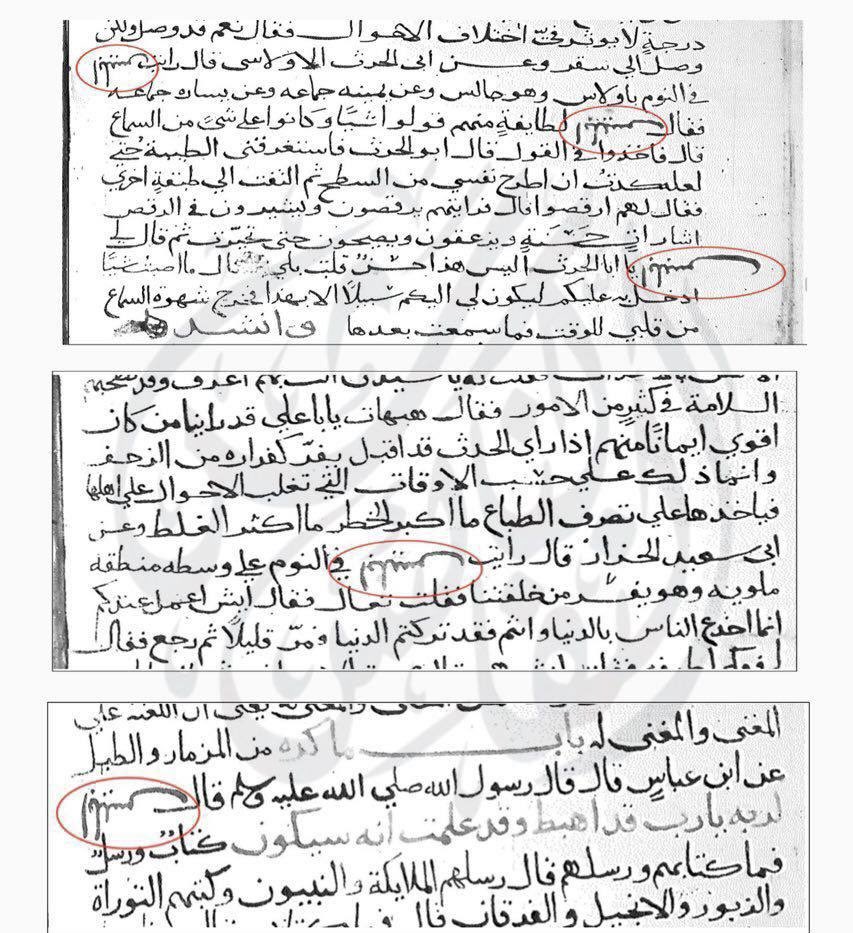 درجة لا يوثر فيه اختلاف الاحوال فقال نعم قد وصل ولكن
وصل الى سقر وعن ابى الحرث الاولاسى قال رايت ابليس
فى النوم باولاس وهو جالس وعن يمينه جماعه وعن يساره جماعه
فقال ابليس لطايفة منهم قولوا شيا وكانوا على شئ من السماع
قال فاخذوا فى القول قال ابو الحرث فاستغرقنى الطيبة حتى
لعله كدت ان اطرح نفسي من السطح ثم التفت الى طبقة اخرى
فقال لهم ارقصوا قال فرايتهم يرقصون ويشيرون فى الرقص
اشارات حسنة ويزعقون ويصيحون حتى تحيرت ثم قال لى
ابليس يا ابا الحرث اليس هذا حسن قلت بلى قال ما اصبت شيا
ادخل به عليكم ليكون لى اليكم سبيلا الا بهذا فخرج شهوة السماع
من قلبي للوقت فما سمعت بعدها وانشد
السلامة فى كثير من الامور فقال هيهات يا با على قد راينا من كان
اقوى ايمانا منهم اذا راى الحدث قد اقبل يفر كفراره من الزحف
وانما ذلك على حسب الاوقات التى تغلب الاحوال على اهلها
فياخذها على تصرف الطباع ما اكبر الخطر ما اكثر الغلط وعن
ابى سعيد الخزاز قال رايت ابليس فى النوم على وسطه منطقة
ملونه وهو يفر من خلفنا فقلت تعال فقال ايش اعمل عندكم
انما اخدع الناس بالدنيا وانتم فقد تركتم الدنيا ومر قليلا ثم رجع فقال
المغنى والمغنى له باب ما كره من المزمار والطبل
عن ابن عباس قال قال رسول الله صلى الله عليه وسلم قال ابليس
لربه يا رب قد اهبط وقد علمت انه سيكون كتاب ورسل
فما كتابهم ورسلهم قال رسلهم الملايكة والنبيون وكتبهم التوراة
والزبور والانجيل والفرقان قال